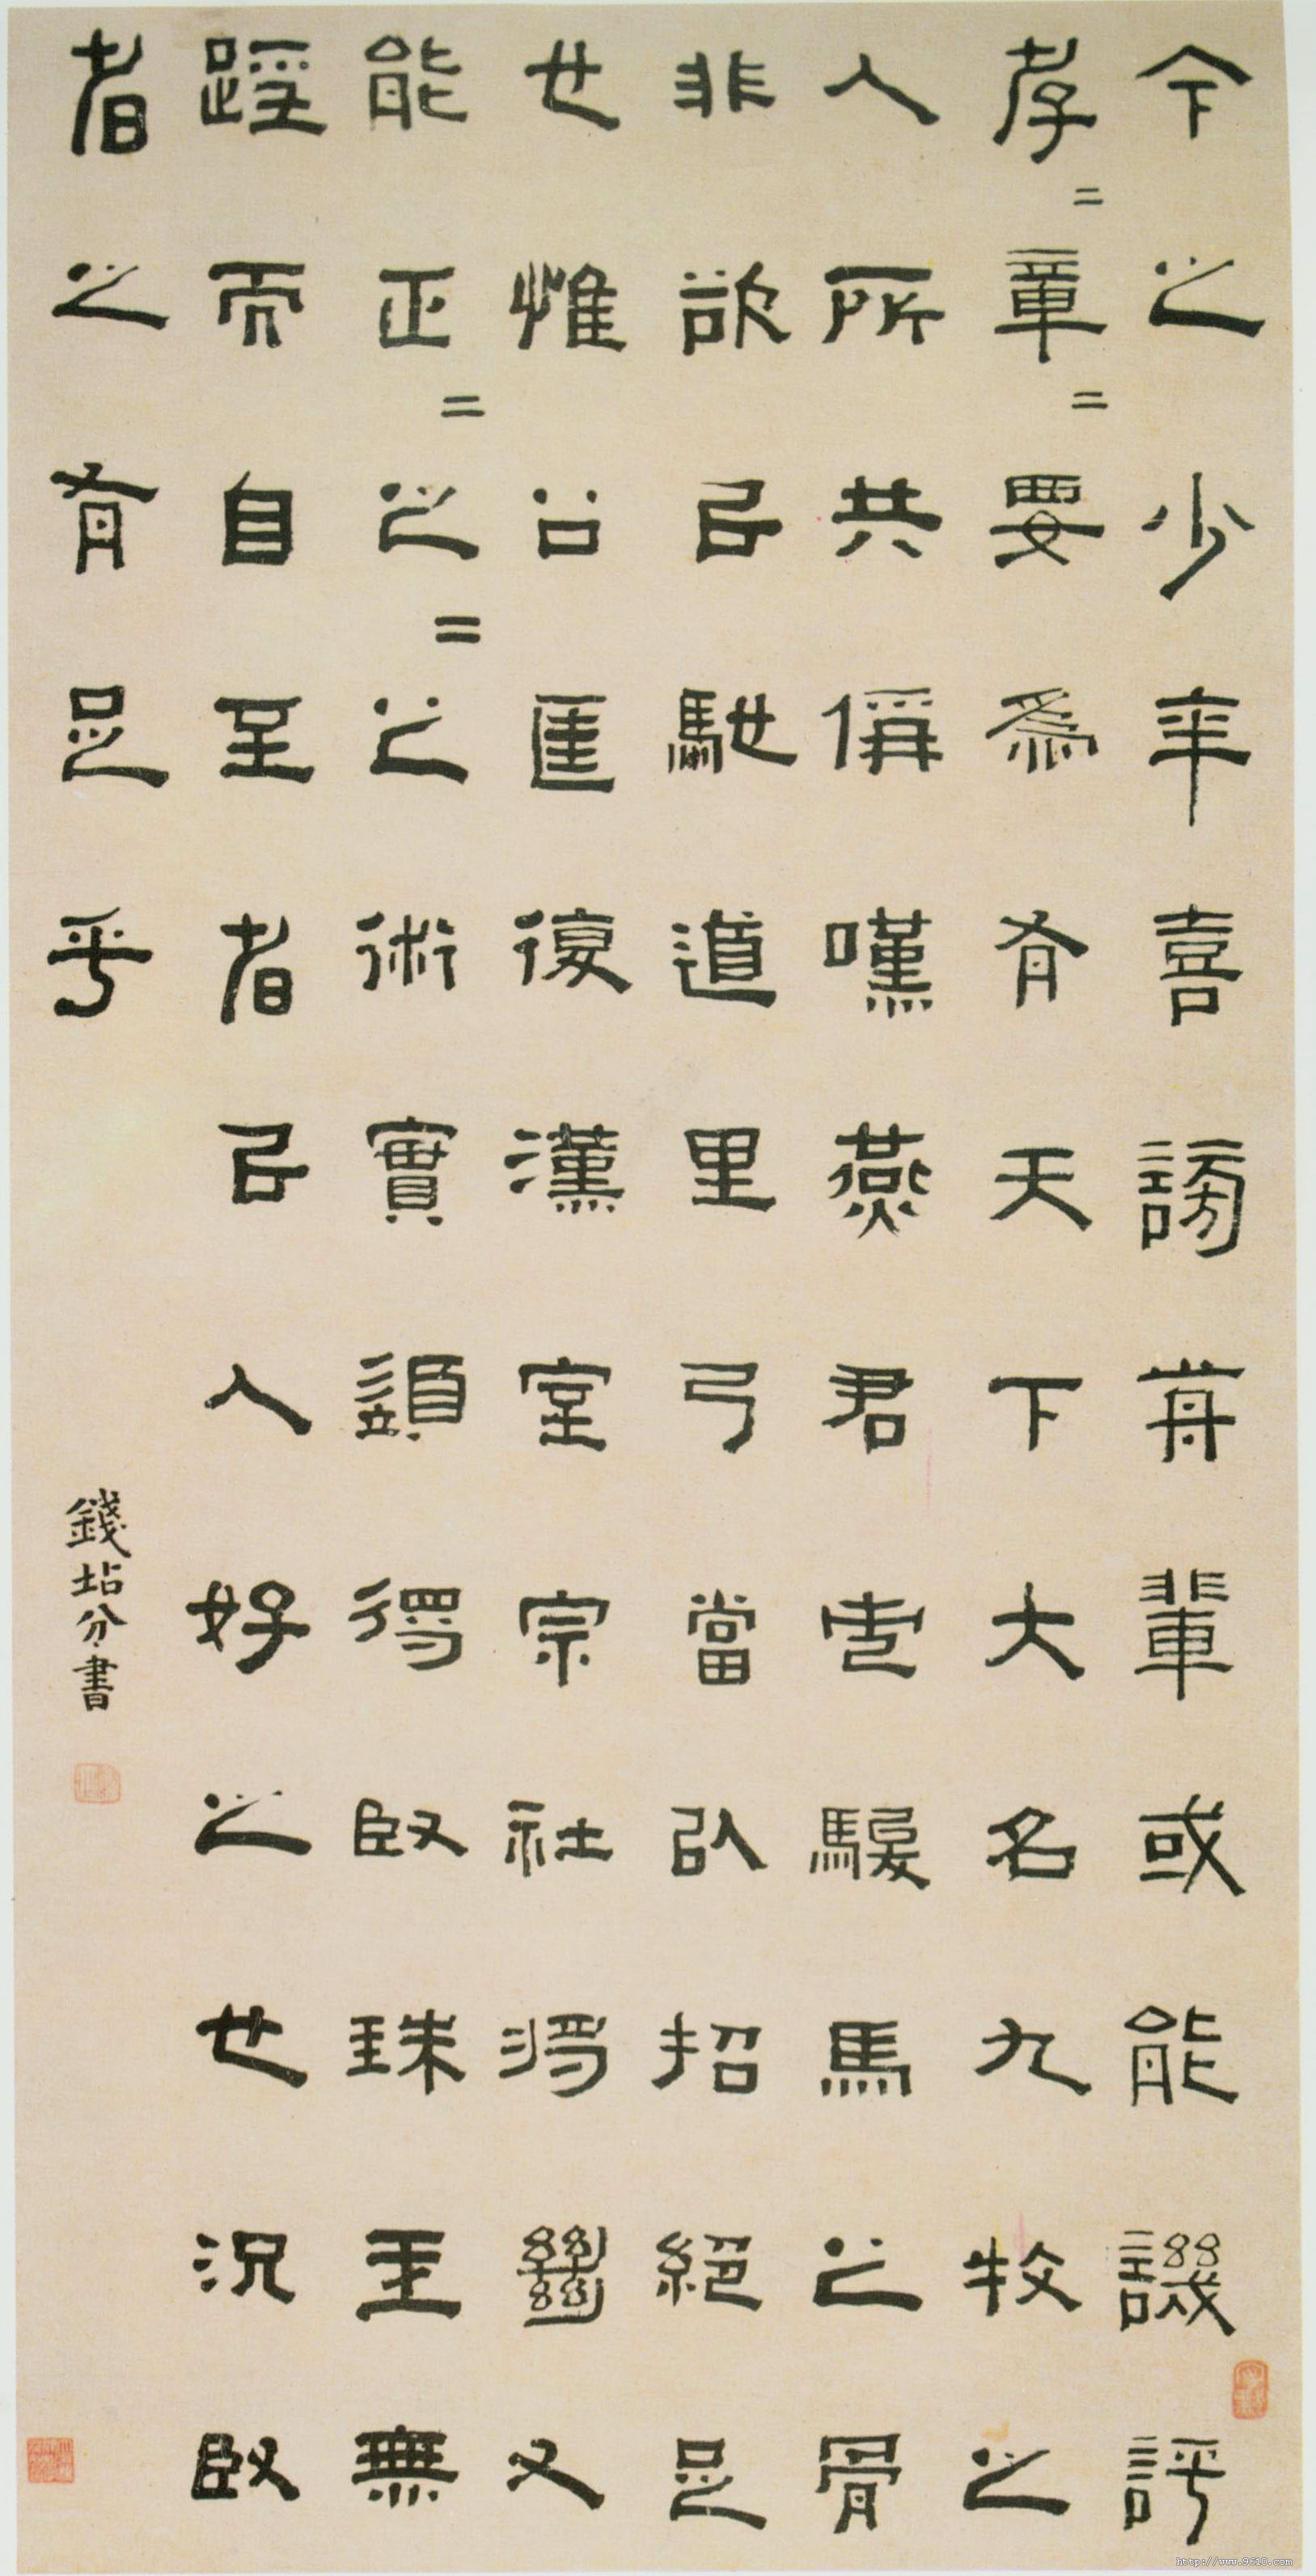 今之少年喜謗歬輩或能譏評
孝=章=要為有天下大名九牧之
人所共偁嘆燕君市駿馬之骨
非欲㠯馳道里乃當以招絕足
也惟公匡復漢室宗社將㡭又
能正=之=之術實須得臤珠玉無
踁而自至者㠯人好之也況臤
者之有足乎
錢坫分書
http://www.9610.com